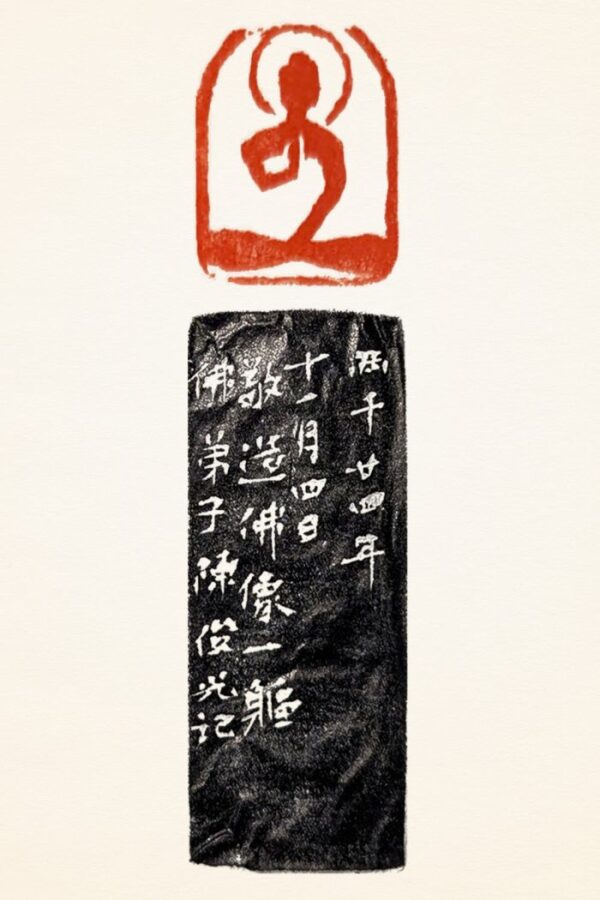 两千廿四年
十一月四日
敬造佛像一軀
佛弟子陳俊光记